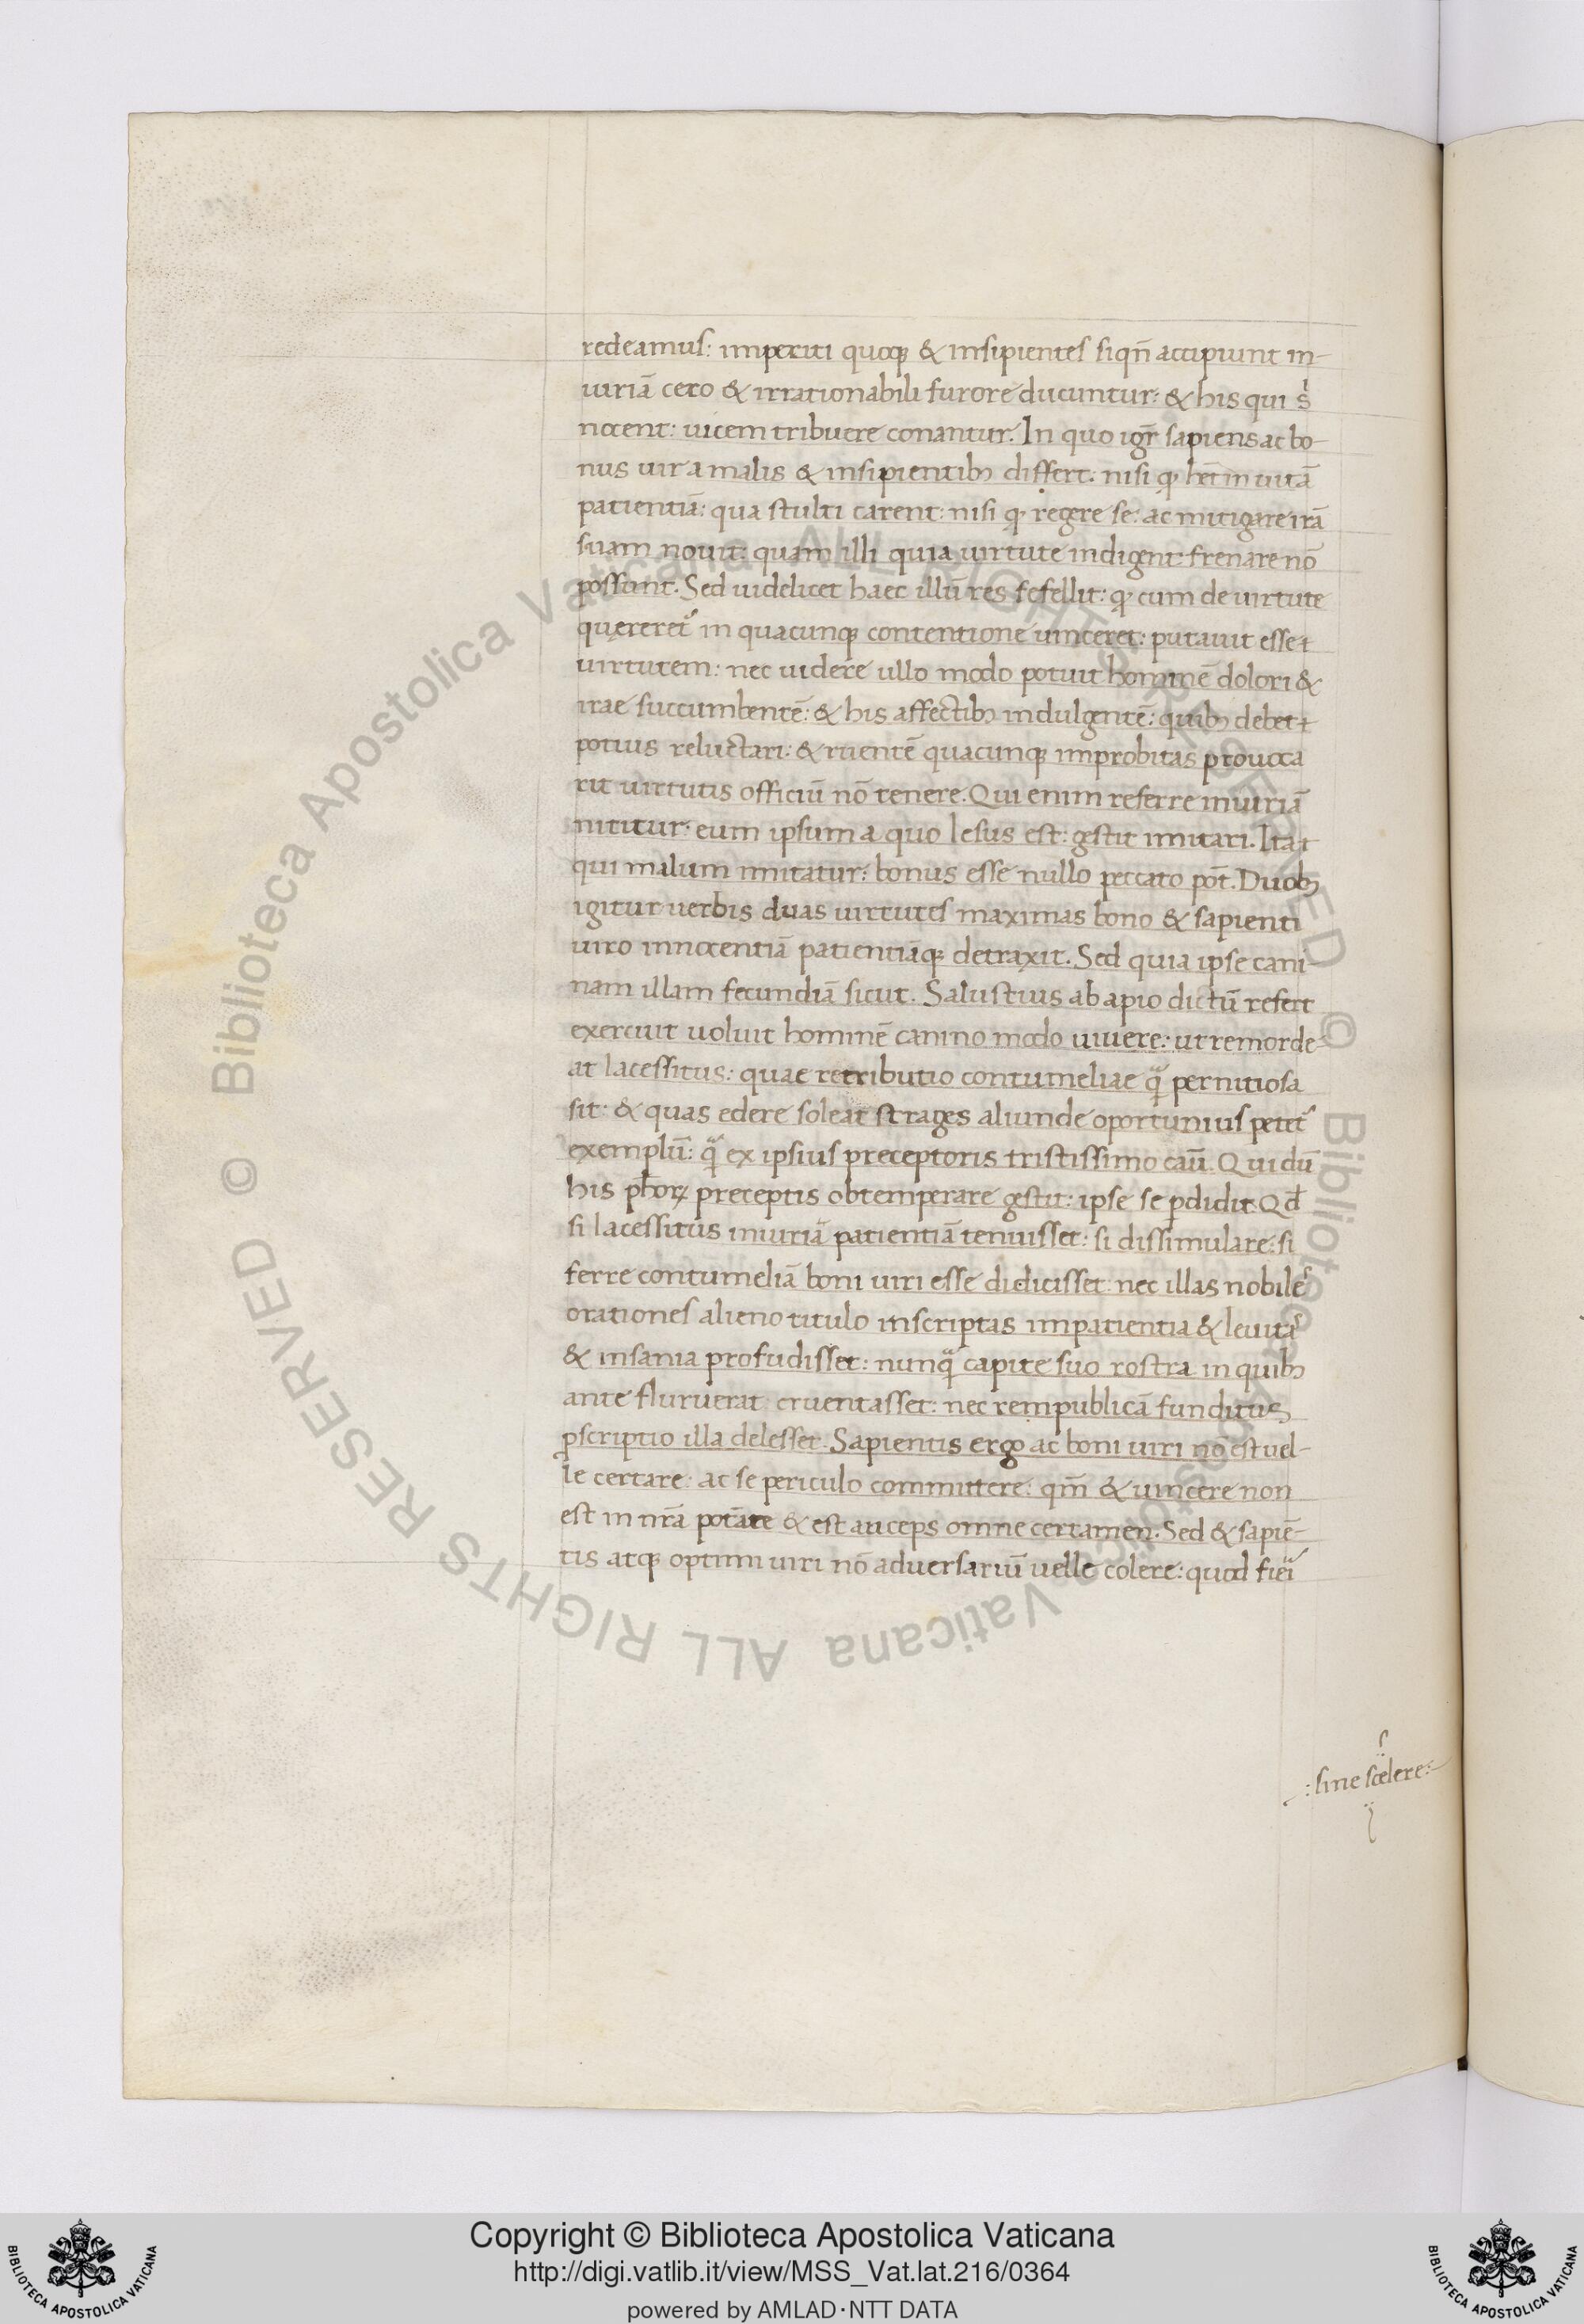 redeamus: imperiti quoq; & insipientes siqñ accipiunt in-
iuriã ceco & irrationabili furore ducuntur: & his qui s͛
nocent: uicem tribuere conantur. In quo igr̃ sapiens ac bo-
nus uir a malis & insipientib; differt: nisi q; hẽt inuictã
patientiã: qua stulti carent: nisi q; regere se: ac mitigare irã
suam nouit: quam illi quia uirtute indigent frenare nõ
possunt. Sed uidelicet haec illũ res fefellit: q; cum de uirtute
quereret᷑ in quacunq; contentione uinceret: putauit esse
uirtutem: nec uidere ullo modo potuit hominẽ dolori &
irae succumbentẽ: & his affectib; indulgentẽ: quib; debet
potius reluctari: & ruentẽ quacunq; improbitas prouoca
rit uirtutis officiũ nõ tenere. Qui enim referre iniuriã
nititur: eum ipsum a quo lesus est: gestit imitari. Ita
qui malum imitatur: bonus esse nullo peccato põt. Duob;
igitur uerbis duas uirtutes maximas bono & sapienti
uiro innocentiã patientiãq; detraxit. Sed quia ipse cani
nam illam fecundiã sicut. Salustius ab apio dictũ refert
exercuit uoluit hominẽ canino modo uiuere: ut remorde-
at lacessitus: quae retributio contumeliae q̃ pernitiosa
sit: & quas edere soleat strages aliunde oportunius petet᷑
exemplũ: q̃ ex ipsius preceptoris tristissimo caũ. Qui dũ
his ph̃orꝝ preceptis obtemperare gestit: ipse se ꝑdidit. Qđ
si lacessitus iniuriã patientiã tenuisset: si dissimulare: si
ferre contumeliã boni uiri esse didicisset: nec illas nobiles
orationes alieno titulo inscriptas impatientia & leuitas
& insania profudisset: nunq̃ capite suo rostra in quib;
ante fluruerat cruentasset: nec rempublicã funditus
ꝓscriptio illa delesset. Sapientis ergo ac boni uiri nõ est uel-
le certare: ac se periculo committere: qm̃ & uincere non
est in nrã potãte & est anceps omne certamen. Sed & sapiẽ-
tis atq; optimi uiri nõ aduersariũ uelle tolere: quod fieri
:sine scelere:
Copyright © Biblioteca Apostolica Vaticana
http://digi.vatlib.it/view/MSS_Vat.lat.216/0364
powered by AMLAD·NTT DATA
BIBLIOTECA APOSTOLICA VATICANA
BIBLIOTECA APOSTOLICA VATICANA
© Biblioteca Apostolica Vaticana ALL RIGHTS RESERVED
© Biblioteca Apostolica Vaticana ALL RIGHTS RESERVED